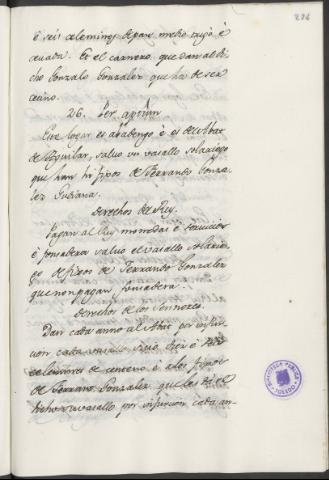 286
é seis celemines de pan medio trigo é
cevada. Et el carnero que dan al di-
cho Gonzalo Gonzalez que ha de ser
cecino.
26.
Este logar es abadengo é es del Abat
de Aguilar, salvo un vasallo solariego
que han hi fijos de Ferrando Gonza-
lez
Derechos del Rey.
Pagan al Rey monedas é servicios
é fonsadera salvo el vasallo solarie-
go de fijos de Ferrando Gonzalez
que non pagan fonsadera.
Derechos de los Sennores.
Dan cada anno al Abat por infur-
cion cada vasallo
de centeno é a los fijos
de Ferrando Gonzalez, que les dá el
dicho vasallo por infurcion cada an-
BIBLIOTECA PUBLICA
TOLEDO